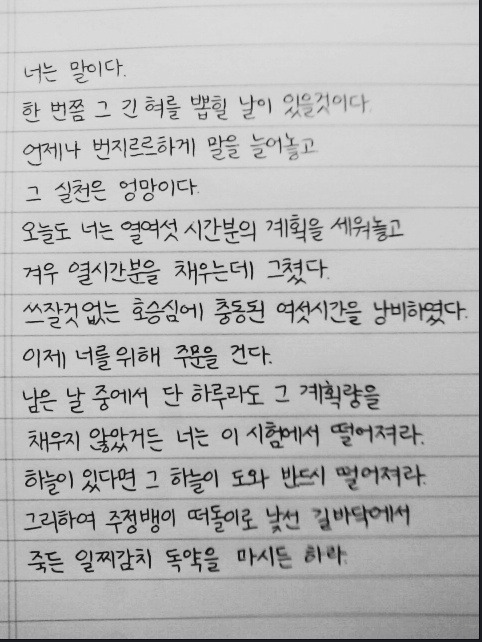 너는 말이다.
한 번쯤 그 긴 혀를 뽑힐 날이 있을것이다.
언제나 번지르르하게 말을 늘어놓고
그 실천은 엉망이다.
오늘도 너는 열여섯 시간분의 계획을 세워놓고
겨우 열시간분을 채우는데 그쳤다.
쓰잘것없는 호승심에 충동된 여섯시간을 낭비하였다.
이제 너를 위해 주문을 건다.
남은 날 중에서 단 하루라도 그 계획량을
채우지 않았거든 너는 이 시험에서 떨어져라.
하늘이 있다면 그 하늘이 도와 반드시 떨어져라.
그리하여 주정뱅이 떠돌이로 낯선 길바닥에서
죽든 일찌감치 독약을 마시든 하라.